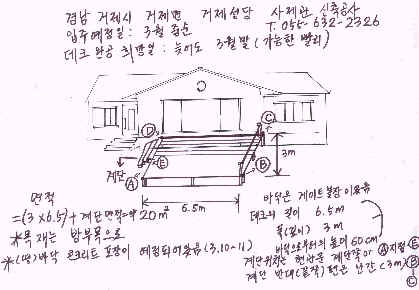 경남 거제시 거제면 거제성당 사제관 신축공사
입주예정일: 3월 중순 T. 055-632-2326
데크 완공 희망일: 늦어도 3월말 (가능한 빨리)
D
C
E
계단
A
B
3m
6.5m
면적
=(3×6.5)+계단면적=약 20m²
*목재는 방부목으로
*(땅)바닥 콘크리트 포장이 예정되어있음 (3.10~11)
바닥은 게이트볼장 이용중
데크의 길이 6.5m
폭(깊이) 3m
바닥으로부터의 높이 60cm
계단위치는 현관문 계단쪽이 A지점 E
계단 반대(끝쪽)편은 난간(3m) B
C